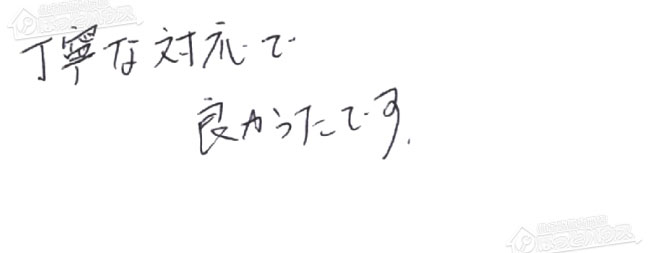 丁寧な対応で
良かったです.